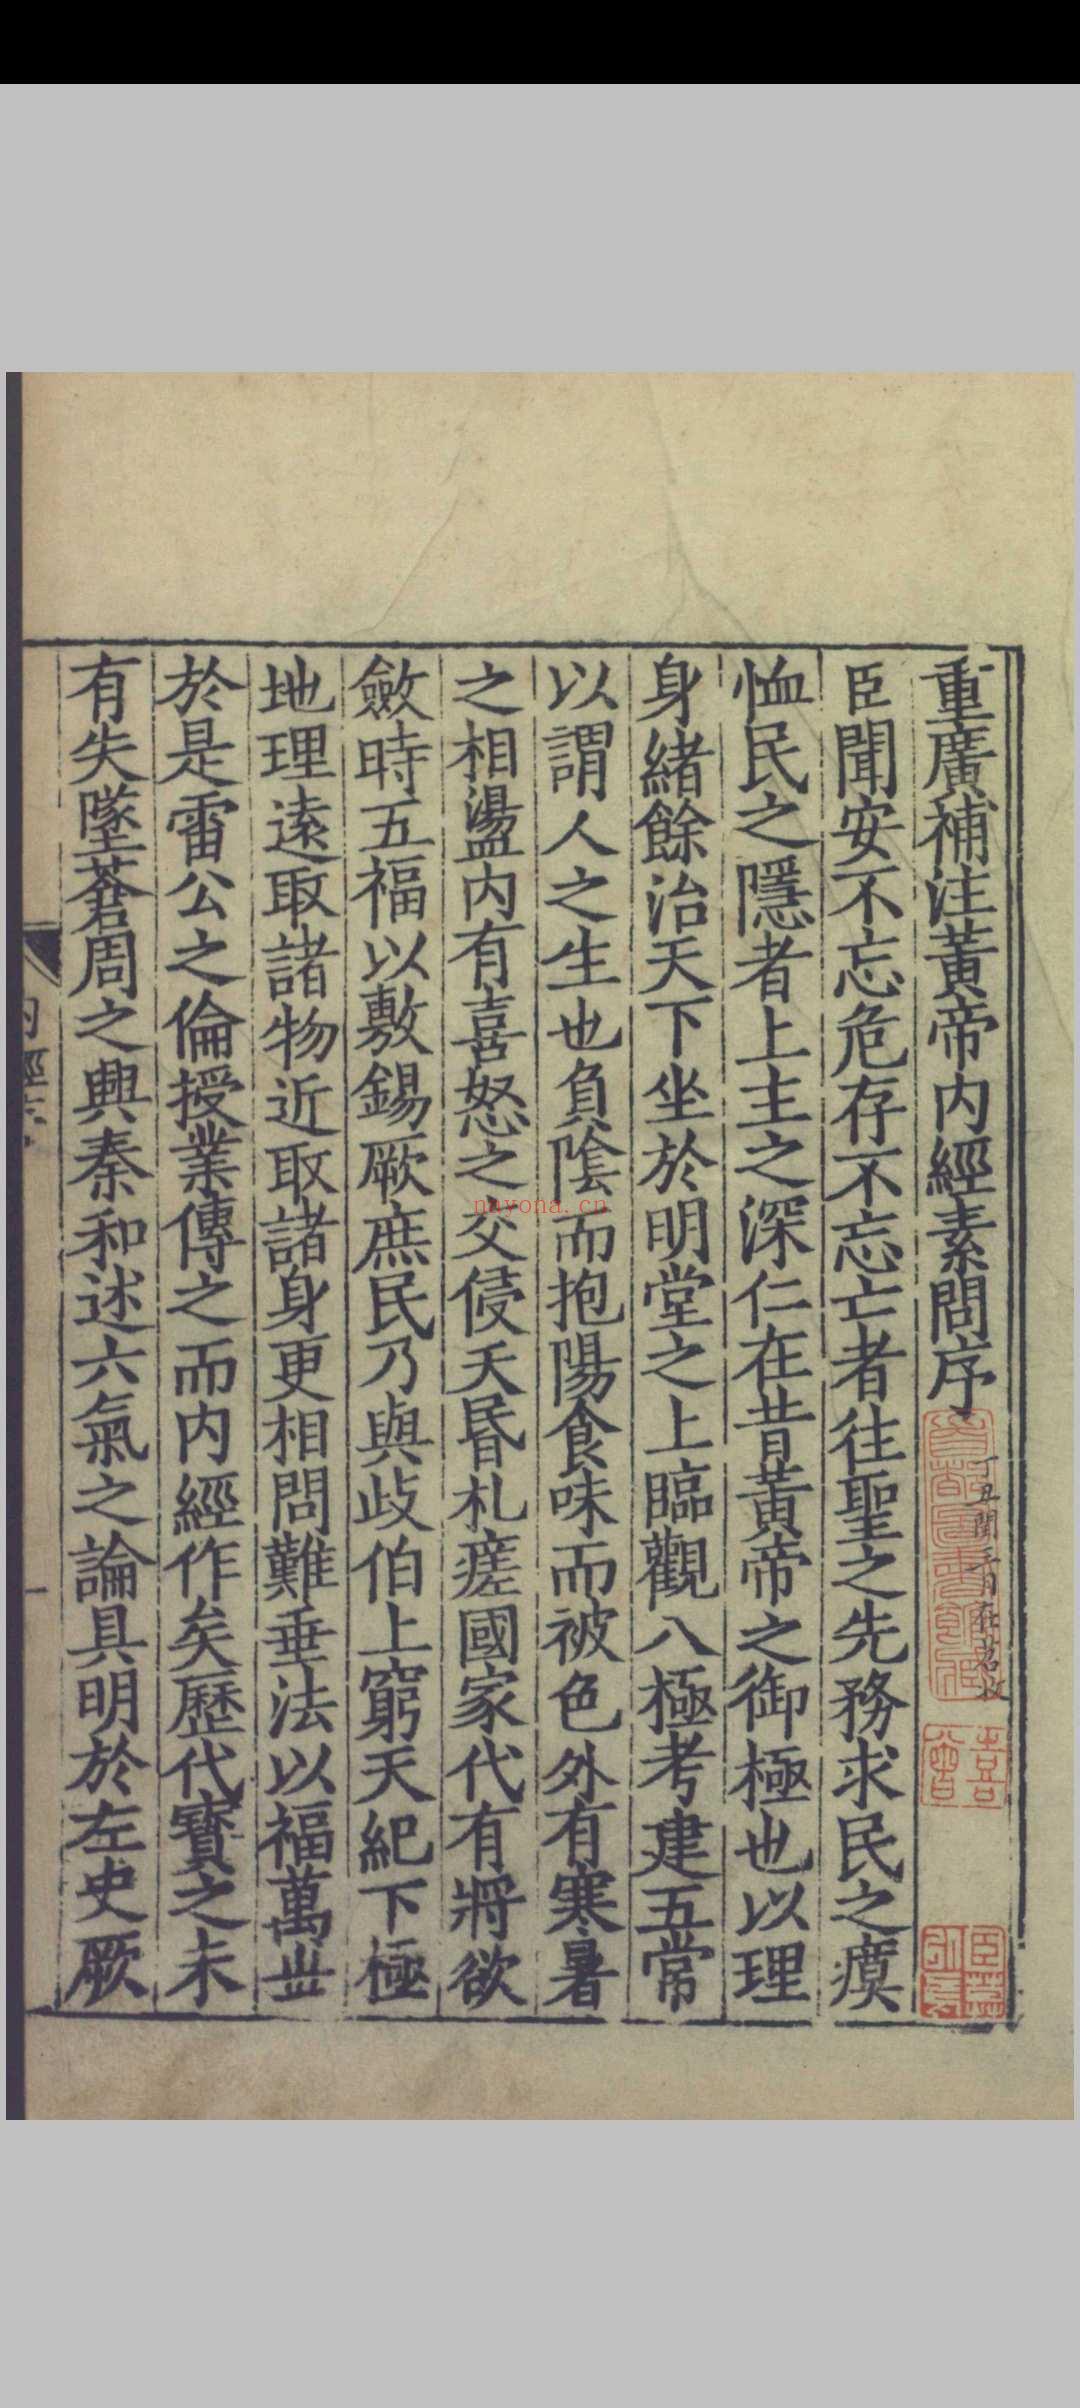 重廣補注黃帝内經素問序
臣聞安不忘危存不忘亡者往聖之先務求民之瘼
恤民之隱者上主之深仁在昔黃帝之御極也以理
身緒餘治天下坐於明堂之上臨觀八極考建五常
以謂人之生也負陰而抱陽食味而被色外有寒暑
之相盪内有喜怒之交侵夭昬札瘥國家代有將欲
斂時五福以敷錫厥庶民乃與歧伯上窮天紀下極
地理逺取諸物近取諸身更相問難垂法以福萬丗
於是雷公之倫授業傳之而内經作矣歷代寶之未
有失墜蒼周之興秦和述六氣之論具明於左史厥
nayona.cn